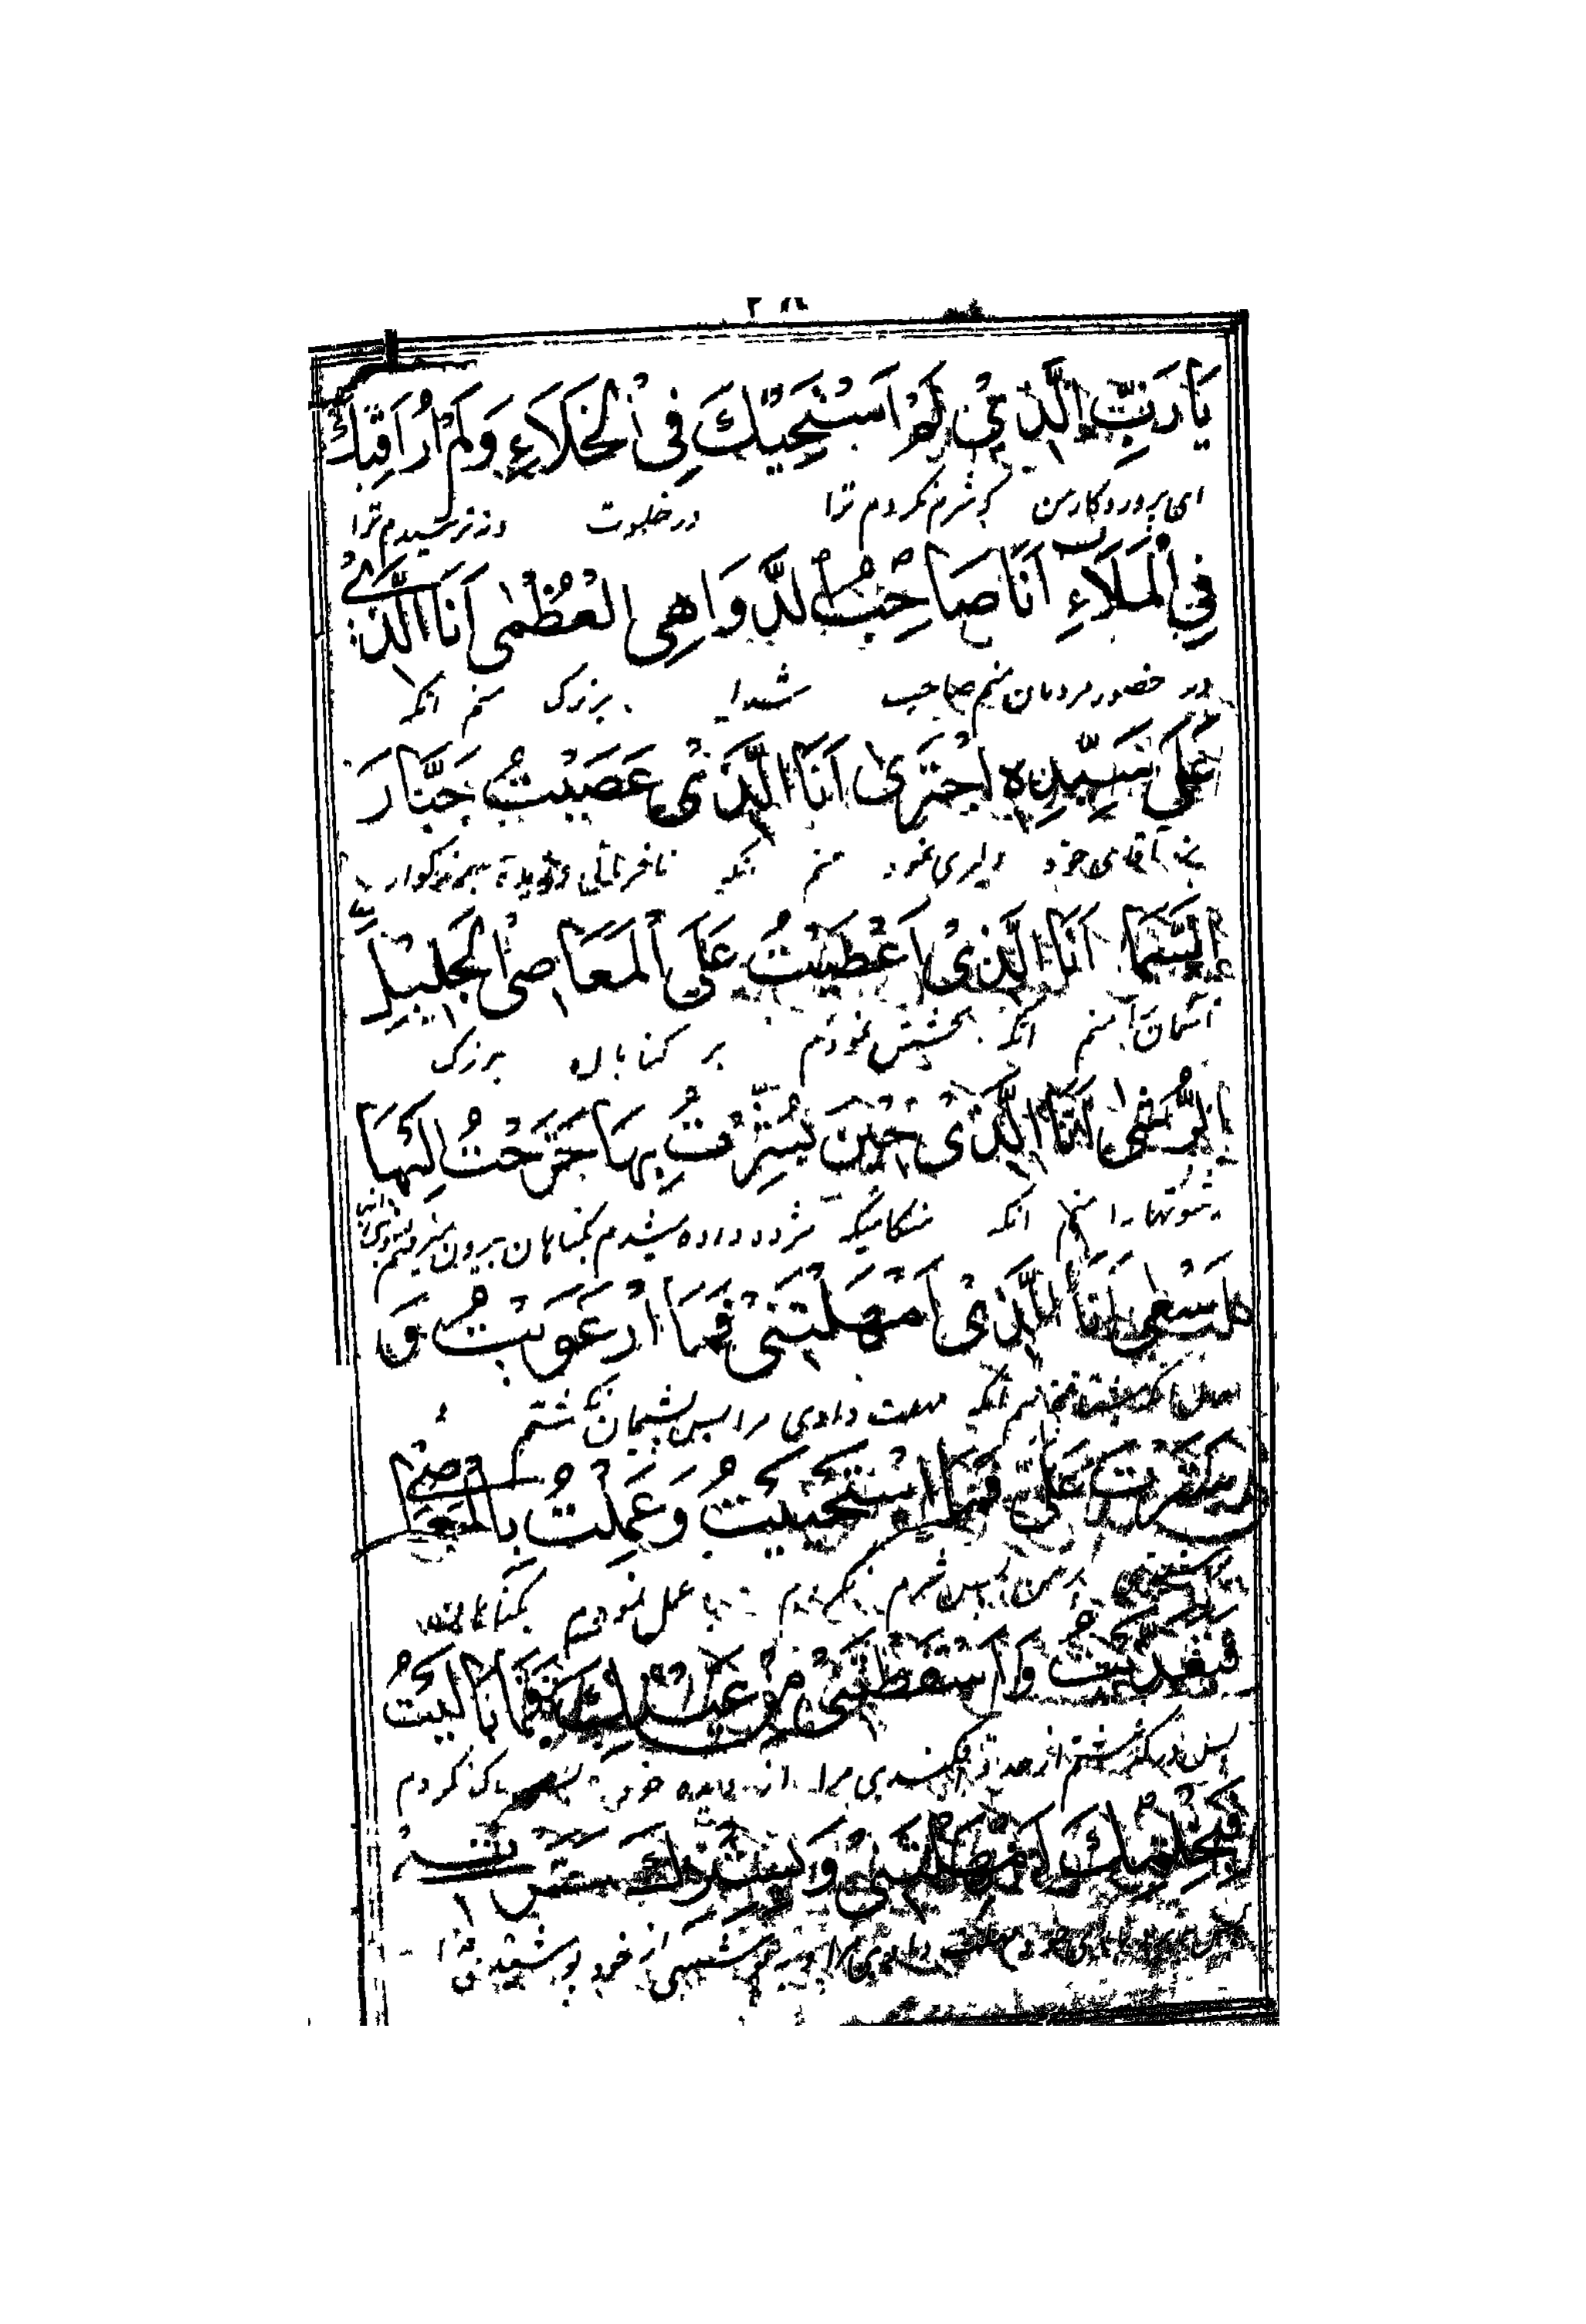 ۲۸
يَا رَبِّ الَّذِي لَمْ اَسْتَحْيِكَ فِي الْخَلَاءِ وَلَمْ اُرَاقِبْكَ
ای پروردگار من که شرم نکردم ترا در خلوت و نترسیدم ترا
فِي الْمَلَاءِ اَنَا صَاحِبُ الدَّوَاهِي الْعُظْمٰى اَنَا الَّذِي
در حضور مردمان منم صاحب شداید بزرگ منم انکه
عَلٰى سَيِّدِهِ اجْتَرٰى اَنَا الَّذِي عَصَيْتُ جَبَّارَ
بر آقای خود دلیری نمود منم انکه نافرمانی
السَّمَاۤءِ اَنَا الَّذِي اَعْطَيْتُ عَلَى الْمَعَاصِي الْجَلِيلِ
آسمان منم انکه بخشش نمودم بر گناهان بزرگ
الرُّشٰى اَنَا الَّذِي حِينَ بُشِّرْتُ بِهَا خَرَجْتُ اِلَيْهَا
رشوتها را منم انکه هنگامیکه مژده داده شدم بگناهان بیرون رفتم بسوی
اَسْعٰى اَنَا الَّذِي اَمْهَلْتَنِي فَمَا ارْعَوَيْتُ وَ
انکه مهلت دادی مرا پس پشیمان نگشتم و
سَتَرْتَ عَلَيَّ فَمَا اسْتَحْيَيْتُ وَعَمِلْتُ بِالْمَعَاصِي
بر من پس شرم نکردم عمل نمودم بگناهان
فَتَعَدَّيْتُ وَاَسْقَطْتَنِي مِنْ عَيْنِكَ فَمَا بَالَيْتُ
پس در گذشتم از حد افکندی مرا از دیده خود پس باک نکردم
فَبِحِلْمِكَ اَمْهَلْتَنِي وَبِسِتْرِكَ سَتَرْتَنِي
مهلت دادی مرا از خود پوشیدی مرا